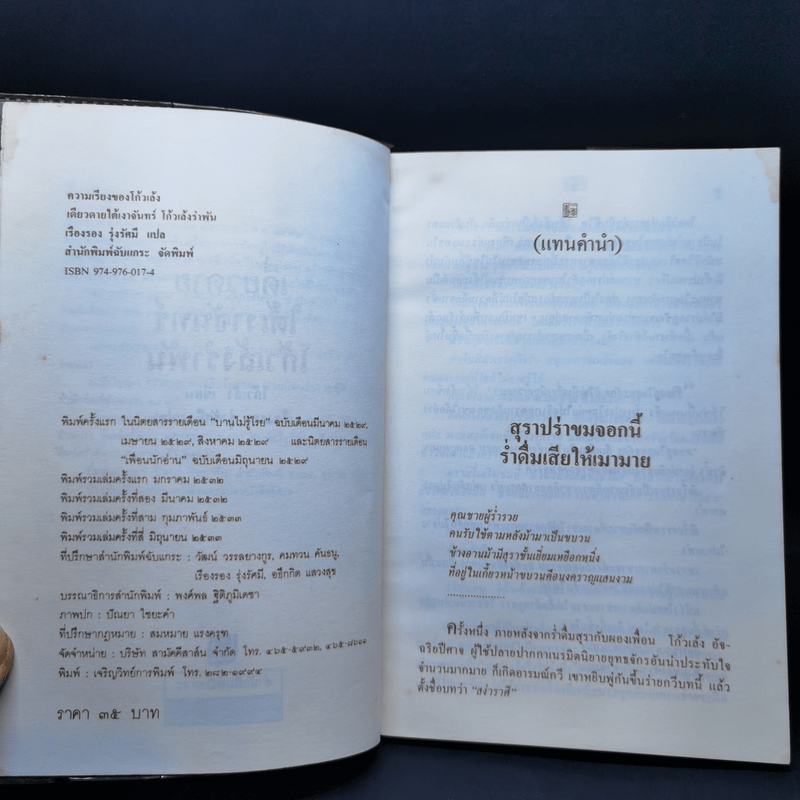 ความเรียงของโก้วเล้ง
เดียวดายใต้เงาจันทร์ โก้วเล้งรำพัน
เรืองรอง รุ่งรัศมี แปล
สำนักพิมพ์ฉับแกระ จัดพิมพ์
ISBN 974-976-017-4
พิมพ์ครั้งแรก ในนิตยสารรายเดือน "บานไม่รู้โรย" ฉบับเดือนมีนาคม ๒๕๒๙,
เมษายน ๒๕๒๙, สิงหาคม ๒๕๒๙ และนิตยสารรายเดือน
"เพื่อนนักอ่าน" ฉบับเดือนมิถุนายน ๒๕๒๙
พิมพ์รวมเล่มครั้งแรก มกราคม ๒๕๓๒
พิมพ์รวมเล่มครั้งที่สอง มีนาคม ๒๕๓๒
พิมพ์รวมเล่มครั้งที่สาม กุมภาพันธ์ ๒๕๓๓
พิมพ์รวมเล่มครั้งที่สี่ มิถุนายน ๒๕๓๓
ที่ปรึกษาสำนักพิมพ์ฉับแกระ : วัฒน์ วรรลยางกูร, คมทวน คันธนู,
เรืองรอง รุ่งรัศมี, อธึกกิต แสวงสุข
บรรณาธิการสำนักพิมพ์ : พงศ์พล ฐิติภูมิเดชา
ภาพปก : ปัณยา ไชยะคำ
ที่ปรึกษากฎหมาย : สมหมาย แรงครุฑ
จัดจำหน่าย : บริษัท สามัคคีสาส์น จำกัด โทร. ๔๖๕-๕๙๓๒, ๔๖๕-๘๖๑๑
พิมพ์ : เจริญวิทย์การพิมพ์ โทร. ๒๘๒-๑๙๙๔
ราคา ๓๕ บาท
(แทนคำนำ)
สุราปร่าขมจอกนี้
ร่ำดื่มเสียให้เมามาย
คุณชายผู้ร่ำรวย
คนรับใช้ตามหลังม้ามาเป็นขบวน
ข้างอานม้ามีสุราชั้นเยี่ยมเหยือกหนึ่ง
ที่อยู่ในเกี้ยวหน้าขบวนคือนงคราญแสนงาม
....................
ครั้งหนึ่ง ภายหลังจากร่ำดื่มสุรากับผองเพื่อน โก้วเล้ง อัจ-
ฉริยปีศาจ ผู้ใช้ปลายปากกาเนรมิตนิยายยุทธจักรอันน่าประทับใจ
จำนวนมากมาย ก็เกิดอารมณ์กวี เขาหยิบพู่กันขึ้นร่ายกวีบทนี้ แล้ว
ตั้งชื่อบทว่า "สง่าราศี"